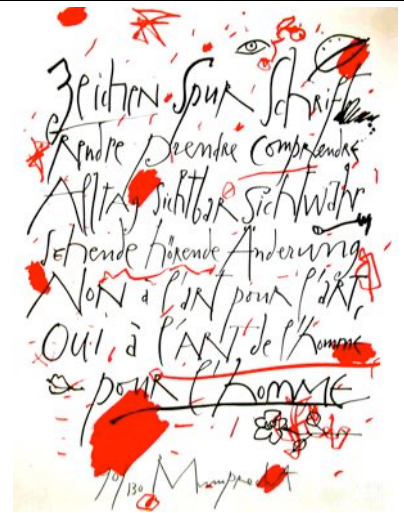 Zeichen Spur Schrift
Rendre prendre comprendre
Alltag Sichtbar Sichtwahr
Sehende hörende Änderung
NoN à l'ART pour l'ART,
OUI, à l'ART de l'homme
pour l'homme
/130